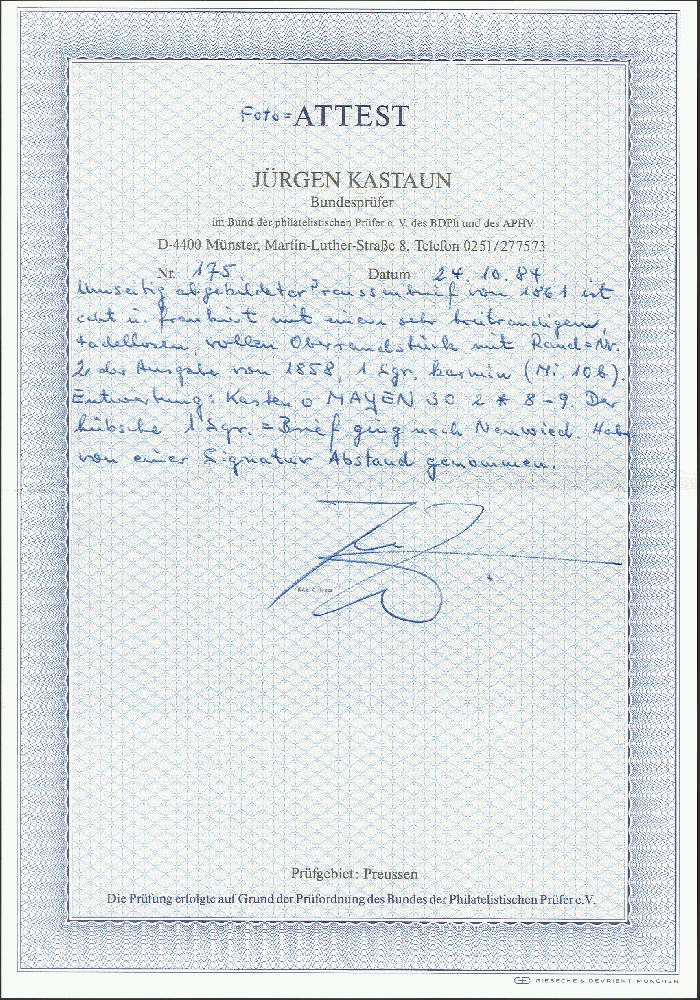 Foto=ATTEST
JÜRGEN KASTAUN
Bundesprüfer
im Bund der philatelistischen Prüfer e. V. des BDPh und des APHV
D-4400 Münster, Martin-Luther-Straße 8, Telefon 0251/277573
Nr. 175 Datum 24.10.84
Umseitig abgebildeter Preussenbrief von 1861 ist
echt u. frankiert mit einem sehr breitrandigem,
tadellosen, vollen Oberrandstück mit Rand=Nr.
2 der Ausgabe von 1858, 1 Sgr. karmin (Mi. 10b).
Entwertung: Kasten o MAYEN 30 2 * 8-9. Der
hübsche 1 Sgr.=Brief ging nach Neuwied. Habe
von einer Signatur Abstand genommen.
Prüfgebiet: Preussen
Die Prüfung erfolgte auf Grund der Prüfordnung des Bundes der Philatelistischen Prüfer e.V.
GIESECKE & DEVRIENT MÜNCHEN